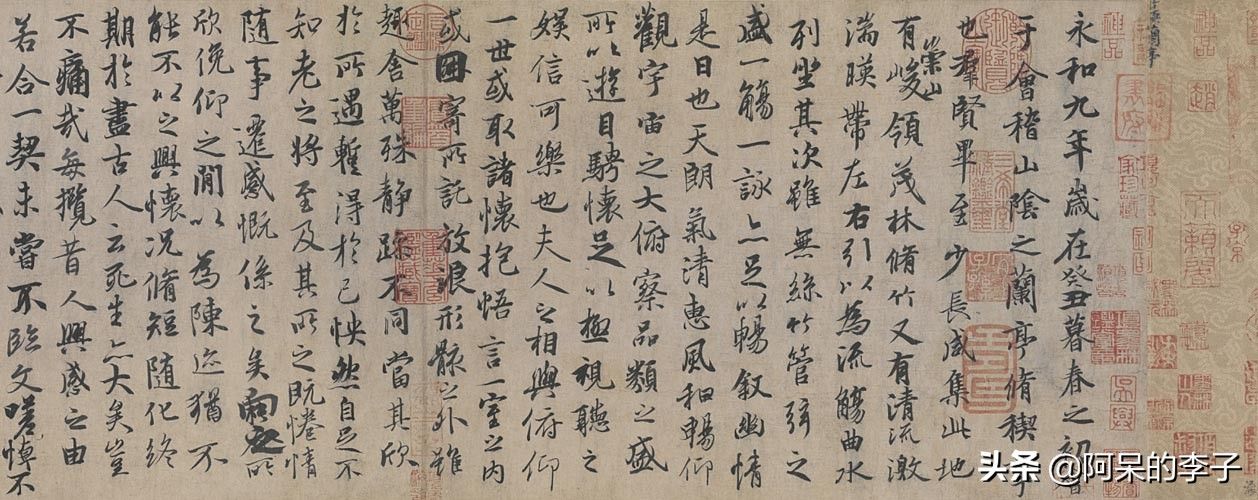 永和九年歲在癸丑暮春之初會
于會稽山陰之蘭亭脩稧事
也羣賢畢至少長咸集此地
有崇山峻領茂林脩竹又有清流激
湍暎帶左右引以為流觴曲水
列坐其次雖無絲竹管弦之
盛一觴一詠亦足以暢叙幽情
是日也天朗氣清惠風和暢仰
觀宇宙之大俯察品類之盛
所以遊目騁懷足以極視聽之
娛信可樂也夫人之相與俯仰
一世或取諸懷抱悟言一室之內
或因寄所託放浪形骸之外雖
趣舍萬殊静躁不同當其欣
於所遇蹔得於己怏然自足不
知老之將至及其所之既惓情
隨事遷感慨係之矣向之所
欣俛仰之閒以為陳迹猶不
能不以之興懷況脩短隨化終
期於盡古人云死生亦大矣豈
不痛哉每攬昔人興感之由
若合一契未嘗不臨文嗟悼不
神品
頭条 @阿呆的李子